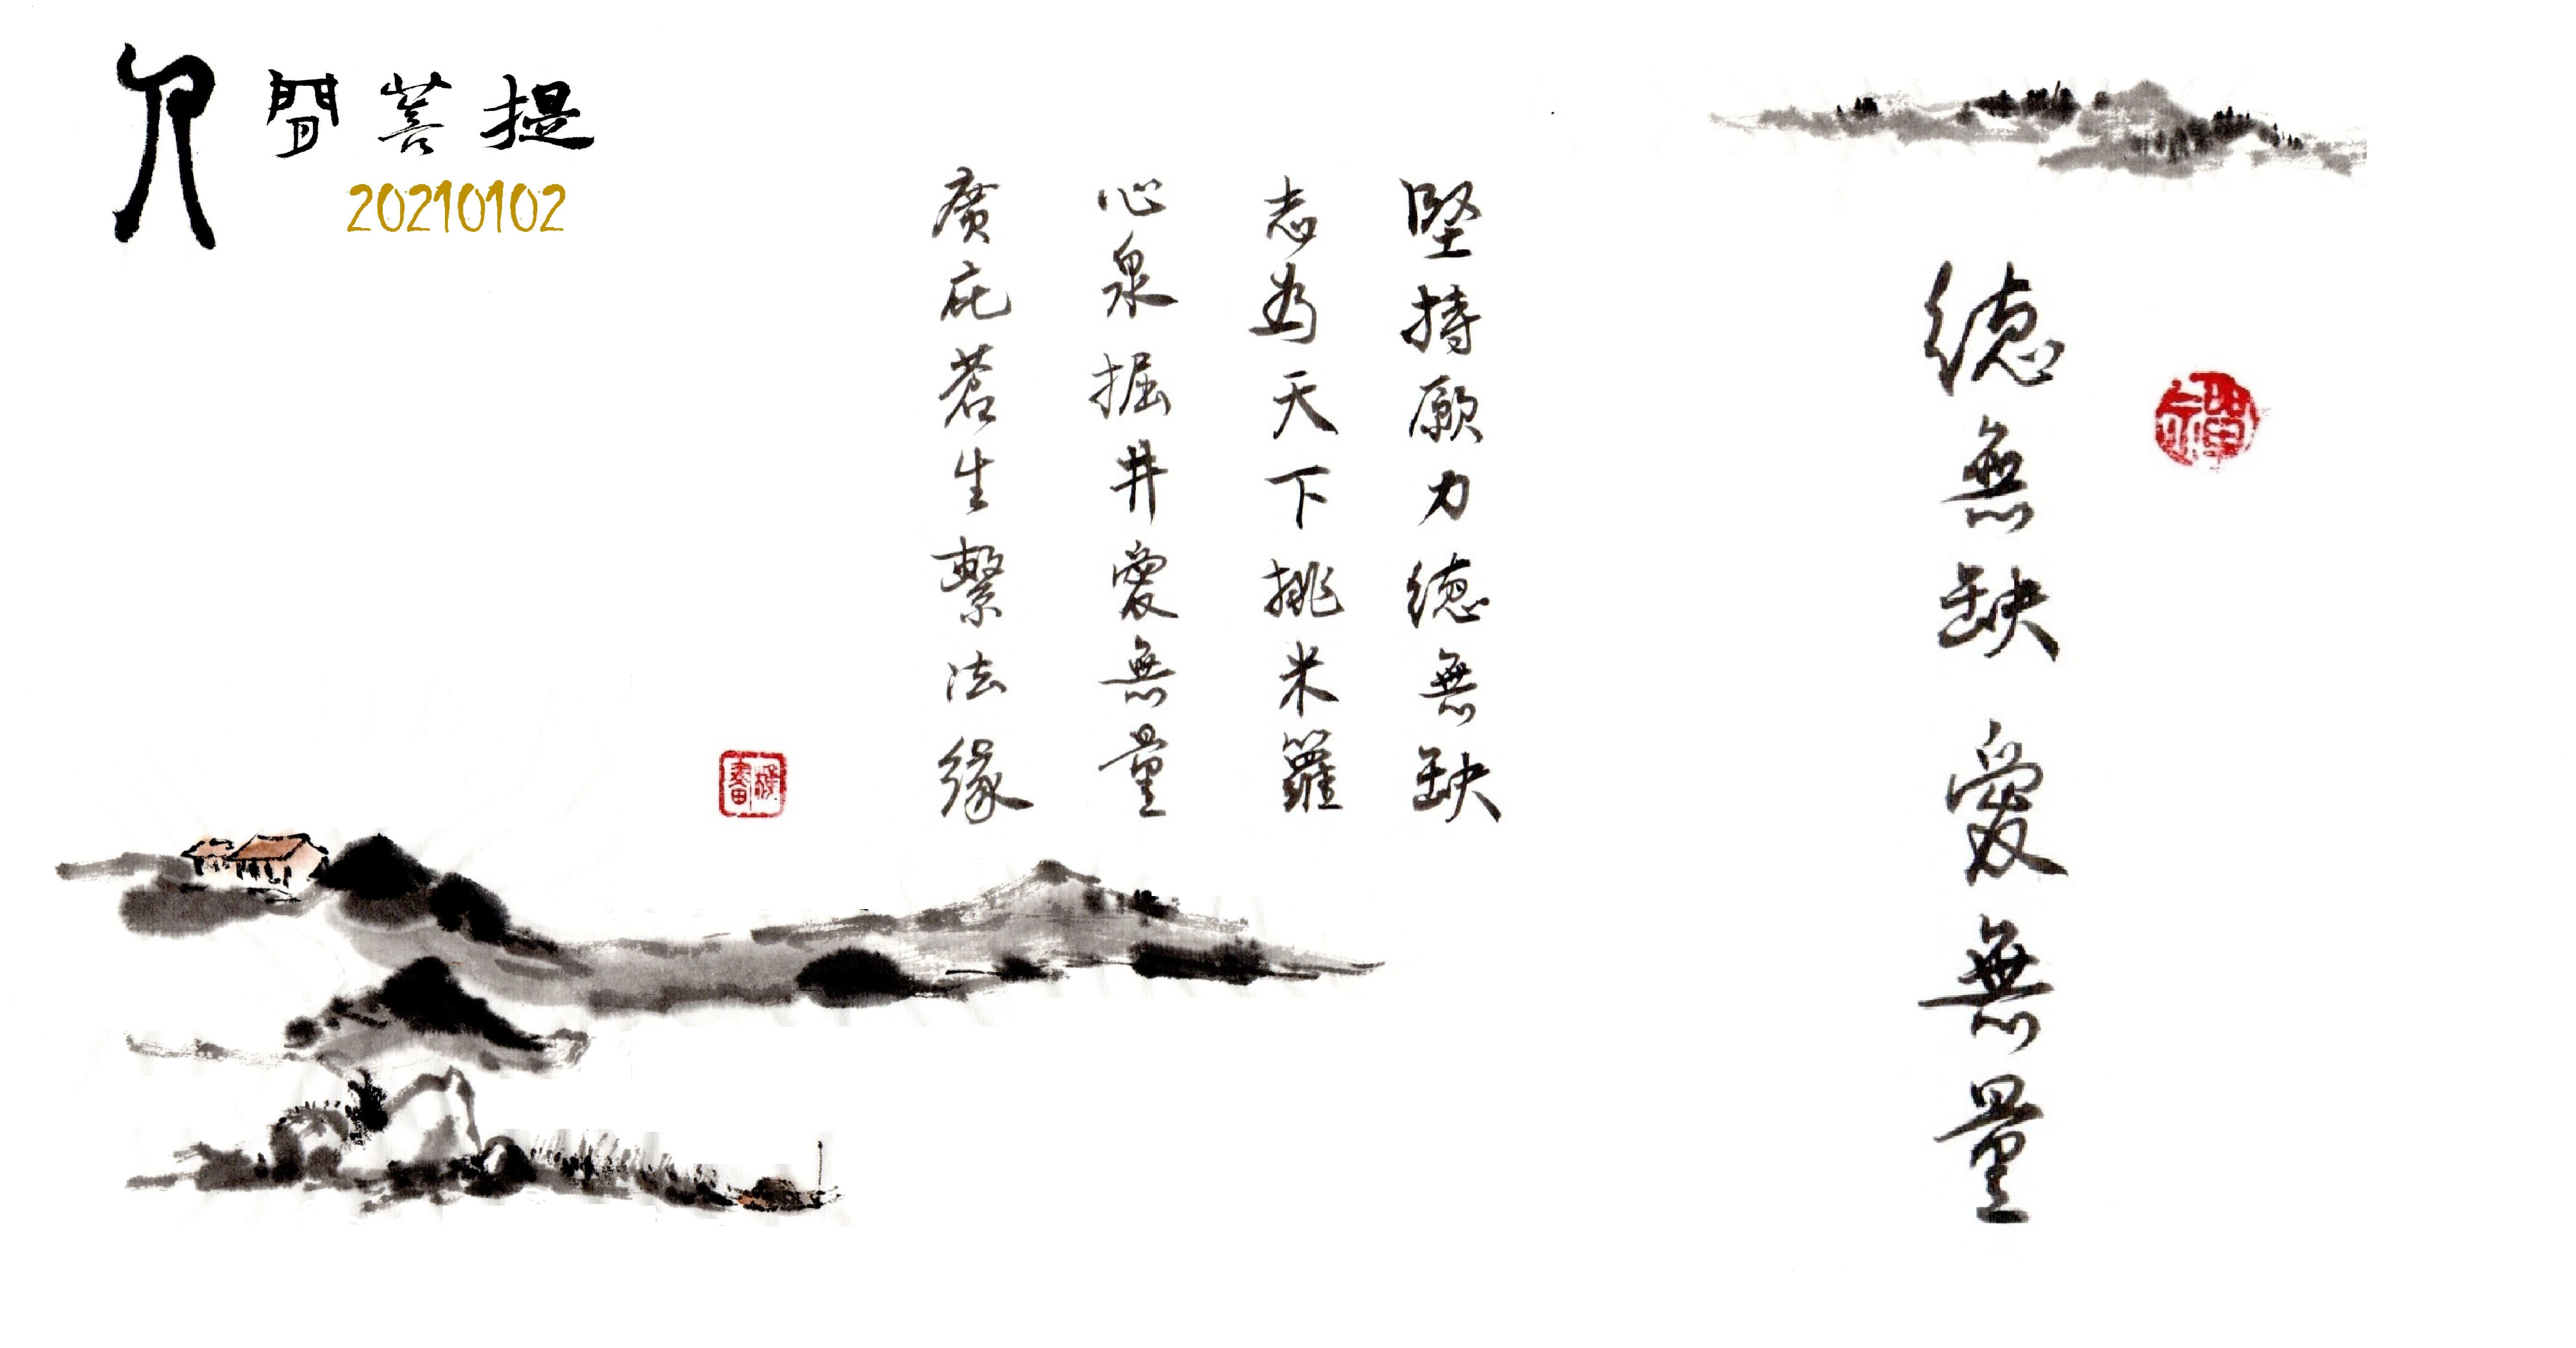 人間菩提
20210102
德無缺 愛無量
堅持願力德無缺
志為天下挑米籮
心泉掘井愛無量
廣庇蒼生繫法緣